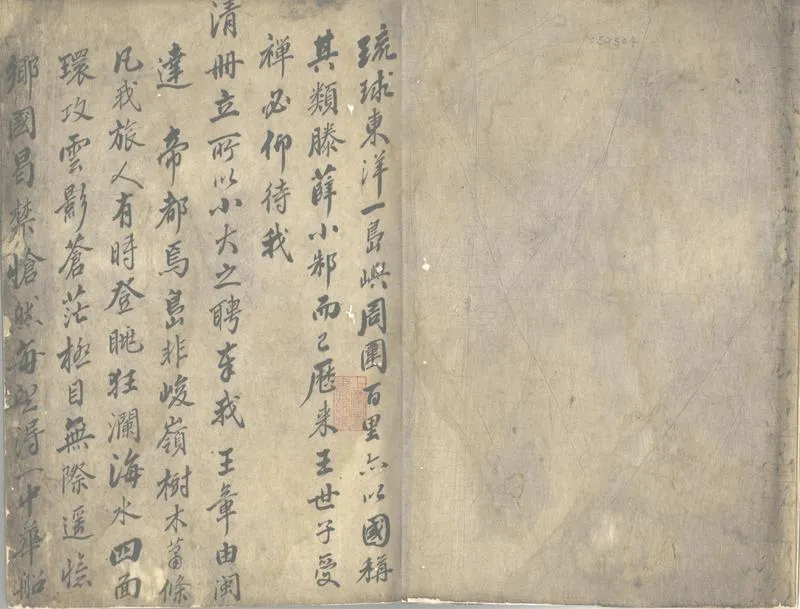 琉球東洋一島嶼周圍百里亦以國稱
其類滕薛小邾而已歷来王世子受
禅必仰待我
清冊立所以小大之聘奉我 王章由闽
達 帝都焉島非峻嶺樹木蕭條
凡我旅人有時登眺狂瀾海水四面
環攻雲影蒼茫極目無際遥憶
鄉國曷禁愴然每得一中華船